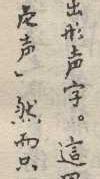 出形声字。這
声」然而只